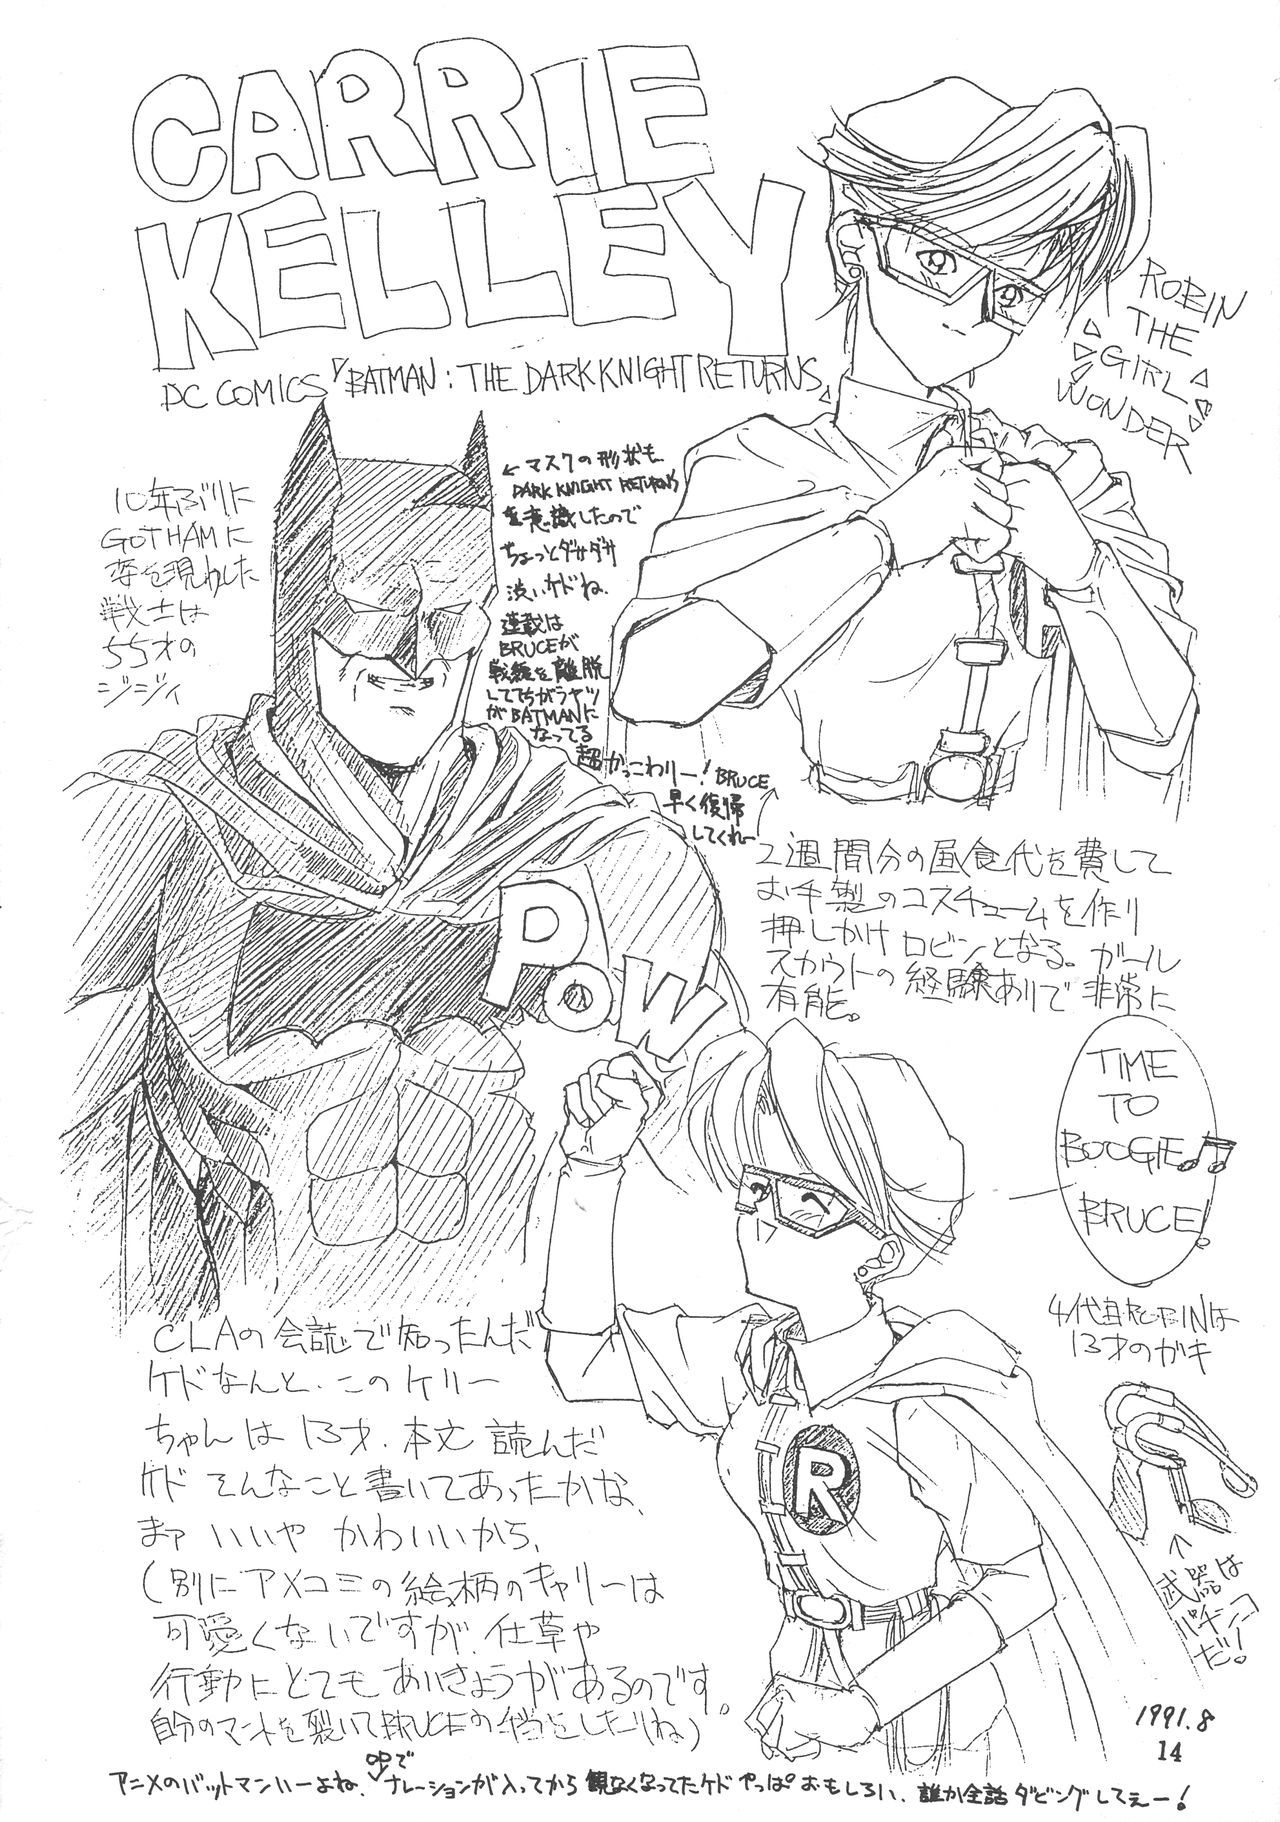 CARRIE
KELLEY
DC COMICS 「BATMAN : THE DARK KNIGHT RETURNS」
ROBIN
THE
GIRL
WONDER
10年ぶりに
GOTHAMに
姿を現わした
戦士は
55才の
ジジィ
← マスクの形状も
DARK KNIGHT RETURNS
を意識したので
ちょっとダサダサ
渋いケドね.
連載は
BRUCEが
戦線を離脱
しててちがうヤツ
がBATMANに
なってる
超かっこわりー! BRUCE
早く復帰
してくれー
2週間分の昼食代を費して
お手製のコスチュームを作り
押しかけロビンとなる。ガール
スカウトの経験ありで非常に
有能。
POW
TIME
TO
BOOGIE♪♫
BRUCE!
4代目ROBINは
13才のガキ
R
↑
武器は
パチンコ
だ!
CLAの会誌で知ったんだ
ケドなんと、このケリー
ちゃんは13才. 本文読んだ
ケド そんなこと書いてあったかな、
まァ いいや かわいいから、
(別にアメコミの絵柄のキャリーは
可愛くないですが、仕草や
行動にとてもあいきょうがあるのです。
自分のマントを裂いてBRUCEの した(ね)
アニメのバットマンいーよね、OPでナレーションが入ってから観なくなってたケド やっぱおもしろい、誰か全話ダビングしてぇー!
1991.8
14